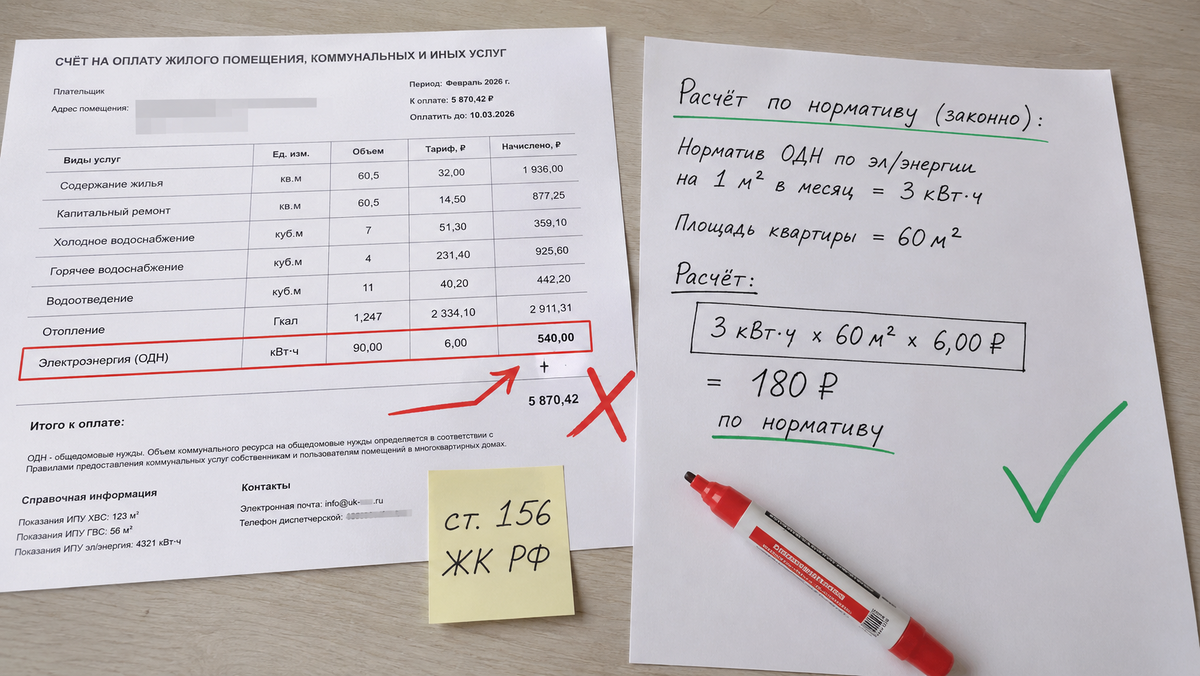 СЧЁТ НА ОПЛАТУ ЖИЛОГО ПОМЕЩЕНИЯ, КОММУНАЛЬНЫХ И ИНЫХ УСЛУГ
Плательщик
Адрес помещения:
Период: Февраль 2026 г.
К оплате: 5 870,42 ₽
Оплатить до: 10.03.2026
Виды услуг Ед. изм. Объем Тариф, ₽ Начислено, ₽
Содержание жилья кв.м 60,5 32,00 1 936,00
Капитальный ремонт кв.м 60,5 14,50 877,25
Холодное водоснабжение куб.м 7 51,30 359,10
Горячее водоснабжение куб.м 4 231,40 925,60
Водоотведение куб.м 11 40,20 442,20
Отопление Гкал 1,247 2 334,10 2 911,31
Электроэнергия (ОДН) кВт·ч 90,00 6,00 540,00
+
Итого к оплате: 5 870,42
ОДН - общедомовые нужды. Объем коммунального ресурса на общедомовые нужды определяется в соответствии с
Правилами предоставления коммунальных услуг собственникам и пользователям помещений в многоквартирных домах.
Справочная информация
Показания ИПУ ХВС: 123 м³
Показания ИПУ ГВС: 56 м³
Показания ИПУ эл/энергия: 4321 кВт·ч
Контакты
Электронная почта: info@uk- .ru
Телефон диспетчерской:
ст. 156
ЖК РФ
Расчёт по нормативу (законно):
Норматив ОДН по эл/энергии
на 1 м² в месяц = 3 кВт·ч
Площадь квартиры = 60 м²
Расчёт:
3 кВт·ч x 60 м² x 6,00 ₽
= 180 ₽
по нормативу